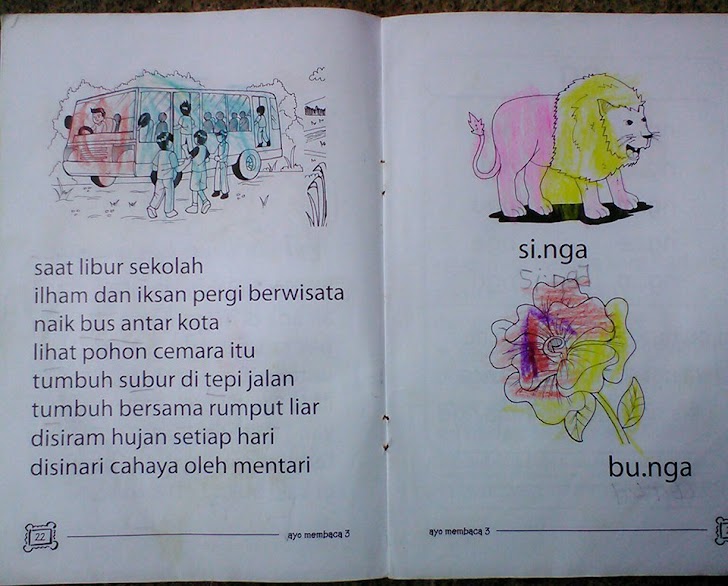 saat libur sekolah
ilham dan iksan pergi berwisata
naik bus antar kota
lihat pohon cemara itu
tumbuh subur di tepi jalan
tumbuh bersama rumput liar
disiram hujan setiap hari
disinari cahaya oleh mentari
22
ayo membaca 3
si.nga
bu.nga
ayo membaca 3